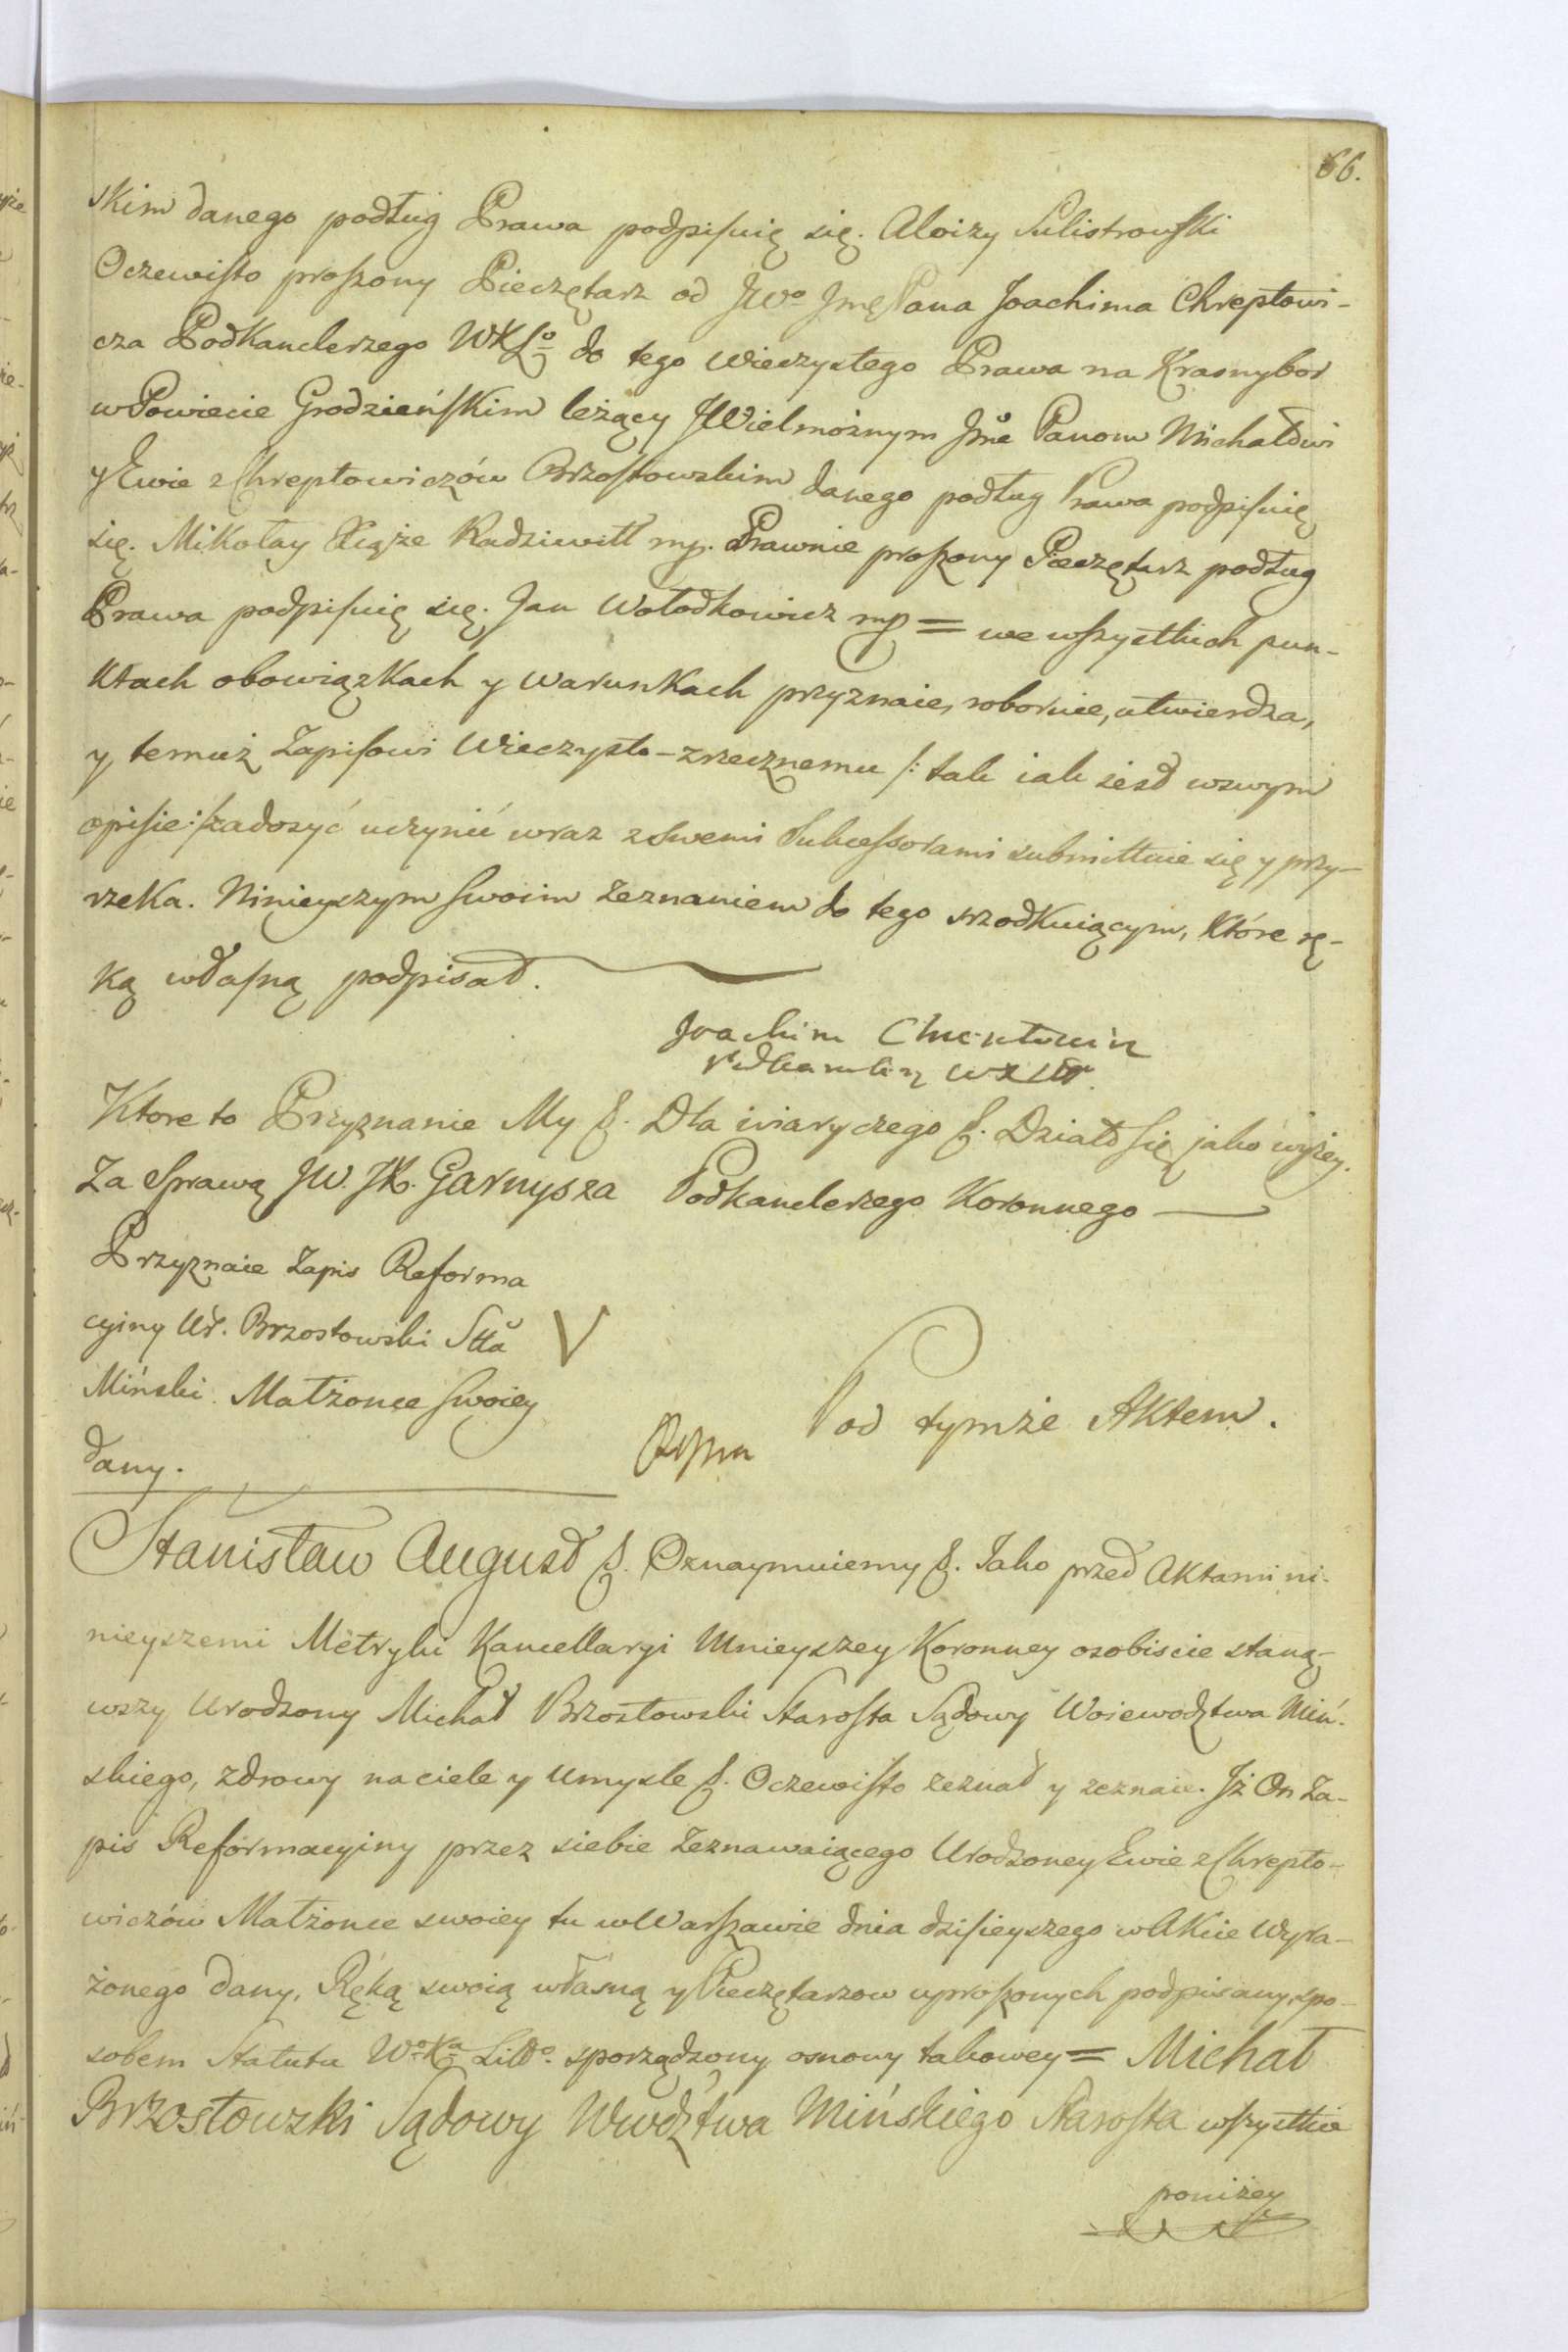 66.
skim danego podług Prawa podpisuię się. Aloizy Sulistrowski
Oczewisto proszony Pieczętarz od JWo Jmę Pana Joachima Chreptowi-
cza Podkanclerzego WXLo do tego Wieczystego Prawa na Krasnybor
w Powiecie Grodzieńskim leżący JWielmożnym Jme Panom Michałowi
y Ewie z Chreptowiczów Brzostowskim danego podług Prawa podpisuię
się. Mikołay Xiąże Radziwiłł mp. Prawnie proszony Pieczętarz podług
Prawa podpisuię się. Jan Wołodkowicz mp = we wszystkich pun-
ktach obowiązkach y warunkach przyznaie, roboruie, utwierdza,
y temuż Zapisowi Wieczysto-zrzecznemu /: tak iak iest w swym
opisie :/ zadosyć uczynić wraz z swemi Sukcessorami submittuie się y przy-
rzeka. Ninieyszym swoim Zeznaniem do tego srzodkuiącym, które rę-
ką własną podpisał.
Joachim Chreptowicz
Podkanclerz WXLit
Ktore to Przyznanie My &. Dla wiary czego &. Działo się jako wyżey.
Za Sprawą JW. JX. Garnysza Podkanclerzego Koronnego
Przyznaie Zapis Reforma
cyiny Ur. Brzostowski Stta
Miński Małżonce swoiey
dany.
Pod tymże Aktem.
Stanisław August &. Oznaymuiemy &. Jako przed Aktami ni-
nieyszemi Metryki Kancellaryi Mnieyszey Koronney osobiscie staną-
wszy Urodzony Michał Brzostowski Starosta Sądowy Woiewodztwa Miń-
skiego, zdrowy na ciele y Umysle &. Oczewisto zeznał y zeznaie. Jż On Za-
pis Reformacyiny przez siebie Zeznawaiącego Urodzoney Ewie z Chrepto-
wiczów Małżonce swoiey tu w Warszawie dnia dzisieyszego w Akcie wyra-
żonego dany, Ręką swoią własną y Pieczętarzow uproszonych podpisany, spo-
sobem Statutu Wo Xa Litto. sporządzony osnowy takowey = Michał
Brzostowski Sądowy Wwdztwa Mińskiego Starosta wszystkie
poniżey